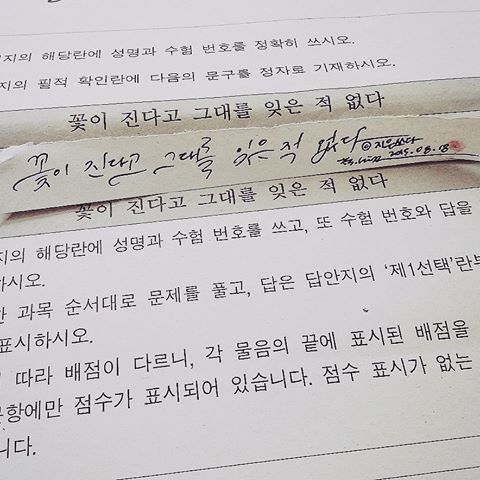 지의 해당란에 성명과 수험 번호를 정확히 쓰시오.
지의 필적 확인란에 다음의 문구를 정자로 기재하시오.
꽃이 진다고 그대를 잊은 적 없다
꽃이 진다고 그대를 잊은 적 없다
2015.08.18
꽃이 진다고 그대를 잊은 적 없다
지의 해당란에 성명과 수험 번호를 쓰고, 또 수험 번호와 답을
하시오.
한 과목 순서대로 문제를 풀고, 답은 답안지의 ‘제1선택’란부
표시하시오.
따라 배점이 다르니, 각 물음의 끝에 표시된 배점을
문항에만 점수가 표시되어 있습니다. 점수 표시가 없는
니다.